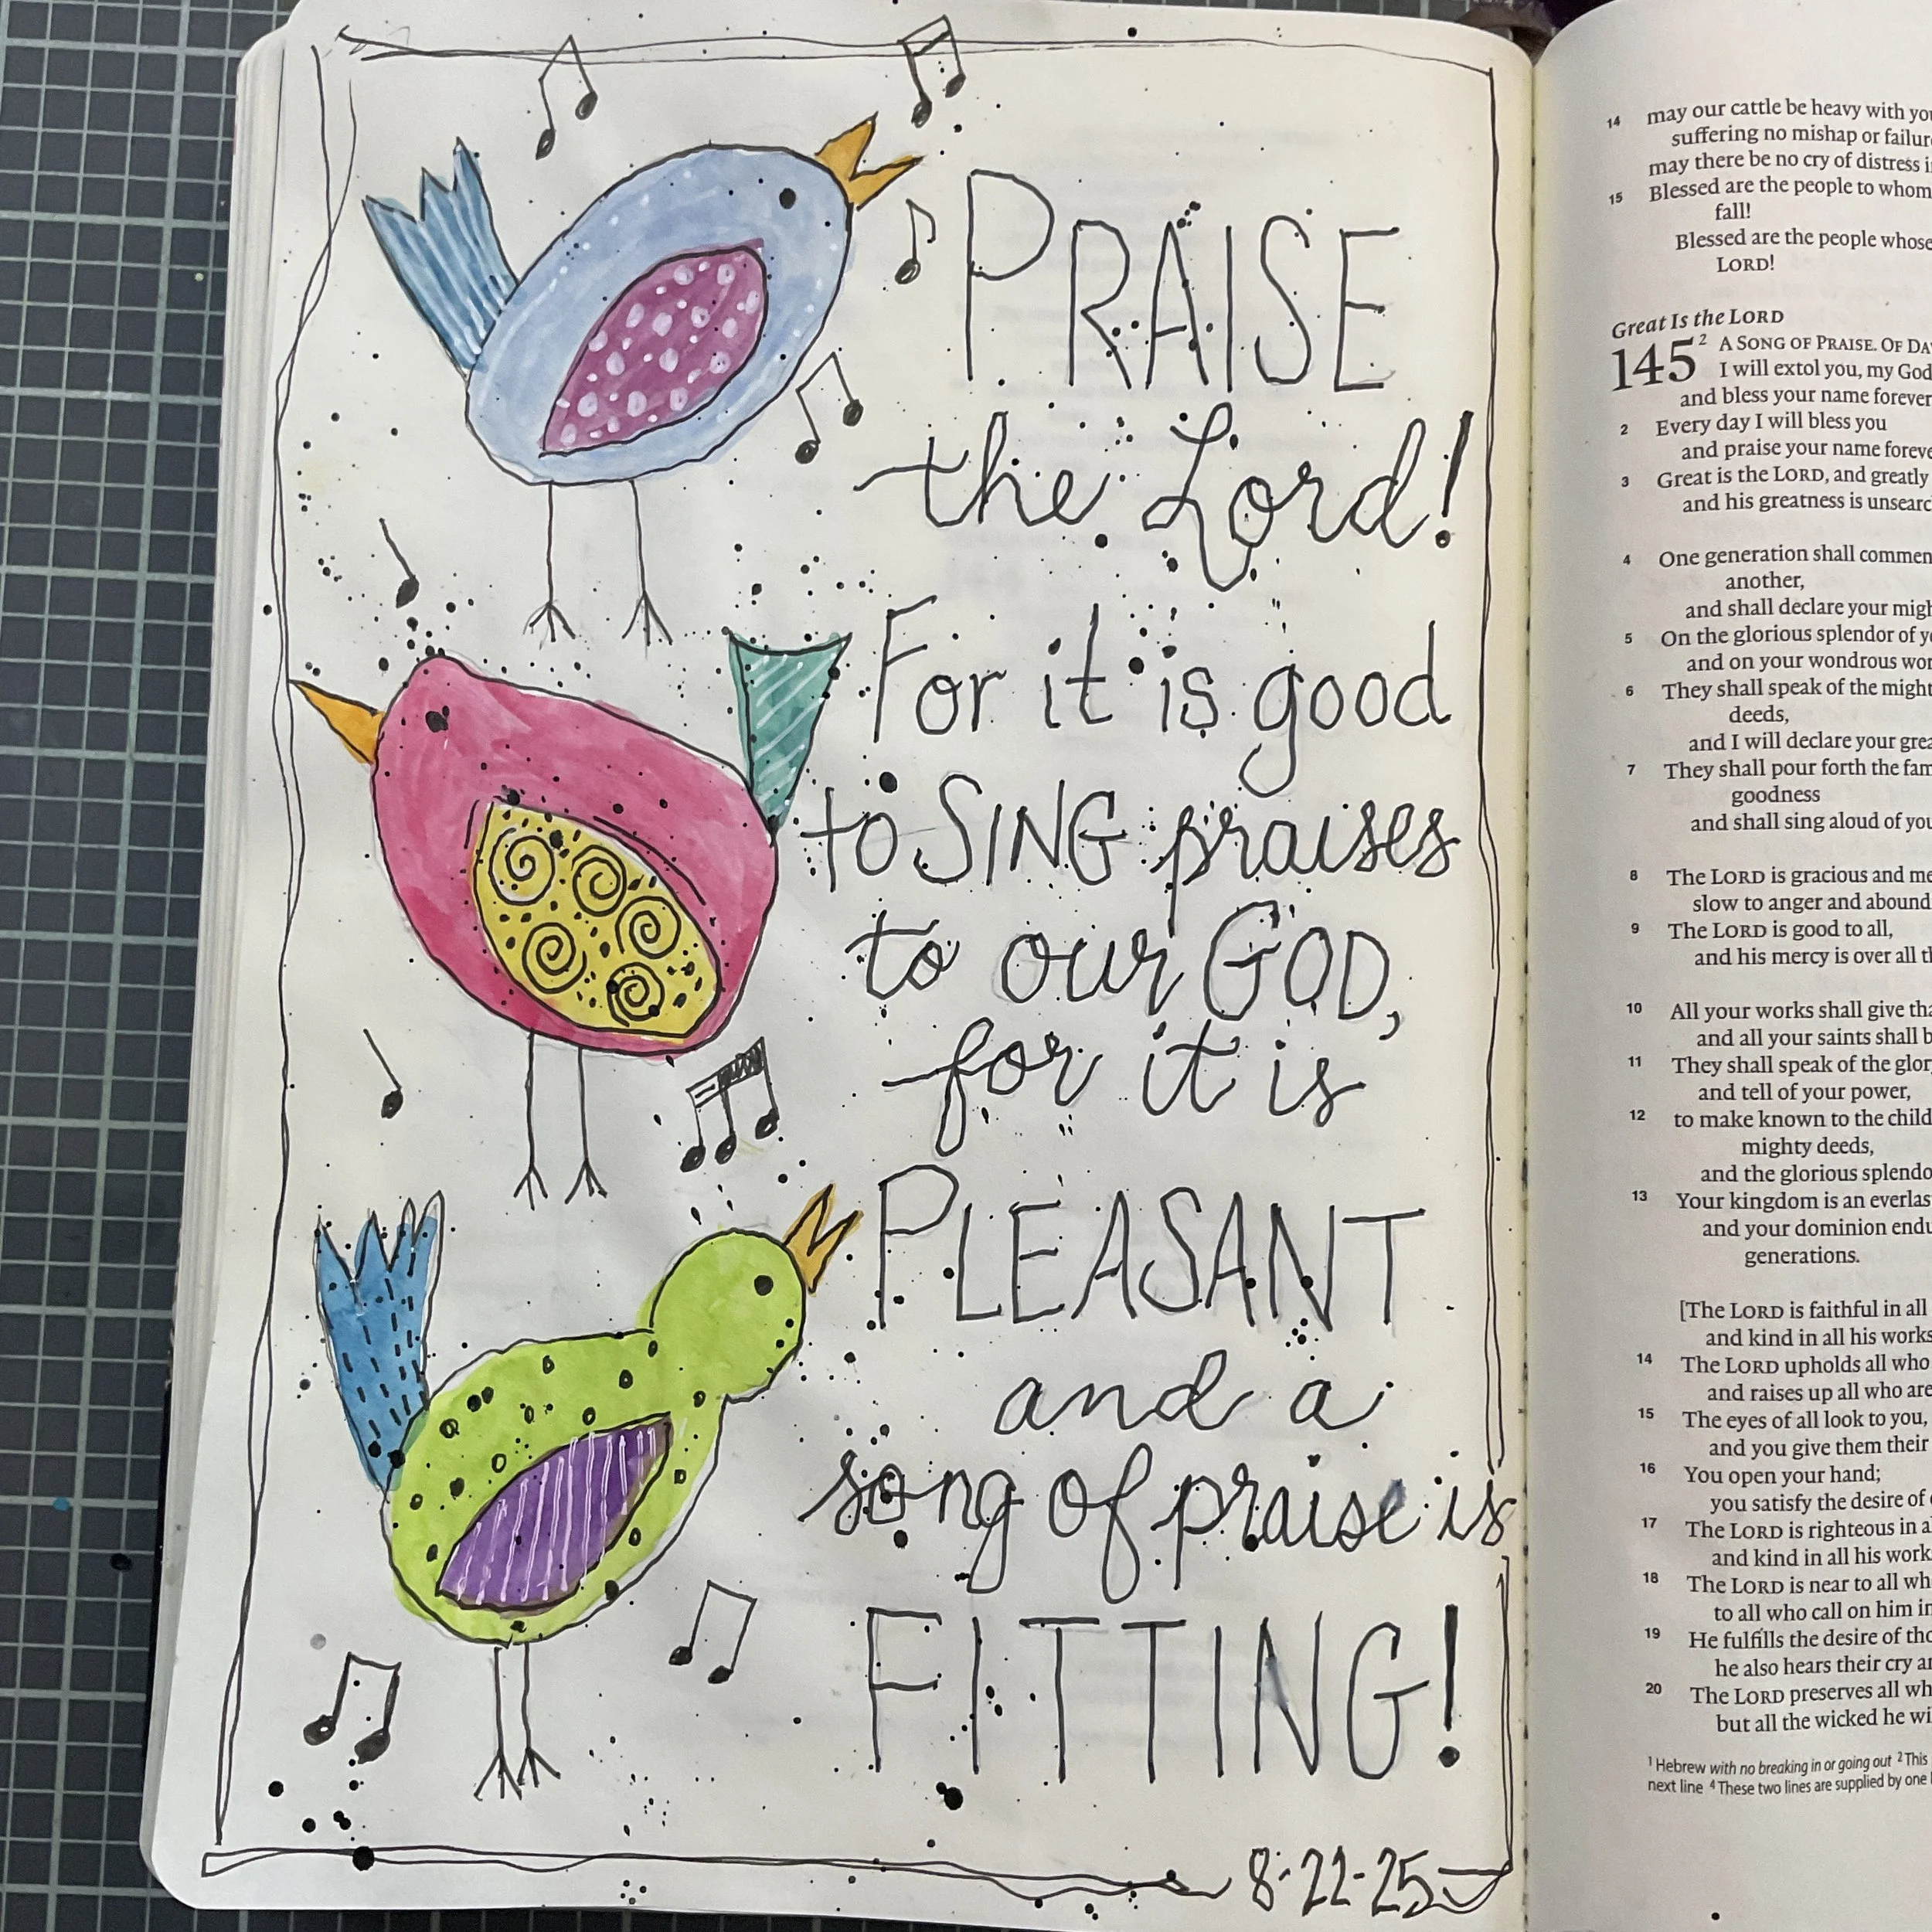 PRAISE
the Lord!
For it is good
to SING praises
to our GOD,
for it is
PLEASANT
and a
song of praise is
FITTING!
8-22-25
14 may our cattle be heavy with
suffering no mishap or
may there be no cry of distress
15 Blessed are the people to whom
fall!
Blessed are the people whose
LORD!
Great Is the LORD
145 2 A SONG OF PRAISE. OF
I will extol you, my God
and bless your name forever
2 Every day I will bless you
and praise your name
3 Great is the LORD, and greatly
and his greatness is
4 One generation shall
another,
and shall declare your
5 On the glorious splendor of
and on your wondrous
6 They shall speak of the might
deeds,
and I will declare your
7 They shall pour forth the
goodness
and shall sing aloud of
8 The LORD is gracious and
slow to anger and
9 The LORD is good to all,
and his mercy is over all
10 All your works shall give
and all your saints shall
11 They shall speak of the
and tell of your power,
12 to make known to the
mighty deeds,
and the glorious
13 Your kingdom is an
and your dominion
generations.
[The LORD is faithful in all
and kind in all his works
14 The LORD upholds all who
and raises up all who are
15 The eyes of all look to you,
and you give them their
16 You open your hand;
you satisfy the desire of
17 The LORD is righteous in
and kind in all his
18 The LORD is near to all
to all who call on him
19 He fulfills the desire of
he also hears their cry
20 The LORD preserves all
but all the wicked he
1 Hebrew with no breaking in or going out 2 This
next line 4 These two lines are supplied by one